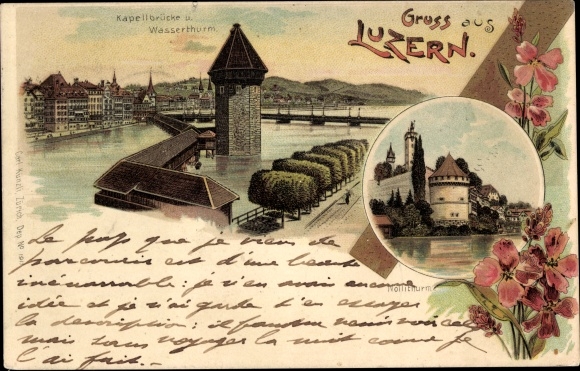 Kapellbrücke u.
Wasserthurm.
Gruss aus
LUZERN.
Nöllithurm.
Carl Künzli, Zürich, Dep. No
Le pays que je viens de
parcourir est d'une beauté
inénarrable: je n'en avais aucune
idée et je n'ai garde d'en essayer
la description: il faudra venir voir cela
mais sans voyager la nuit comme je
l'ai fait.-